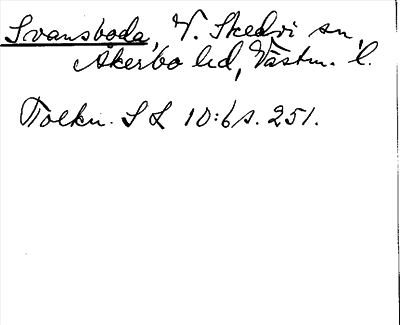 Svansboda, V. Skedvi sn,
Åkerbo hd, Västm. l.
Tolkn. SL 10:6 s. 251.